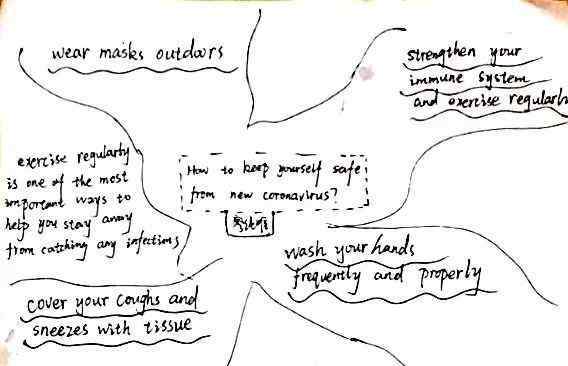 wear masks outdoors
strengthen your
immune system
and exercise regularly
exercise regularly
is one of the most
important ways to
help you stay away
from catching any infections
How to keep yourself safe
from new coronavirus?
wash your hands
frequently and properly
cover your coughs and
sneezes with tissue